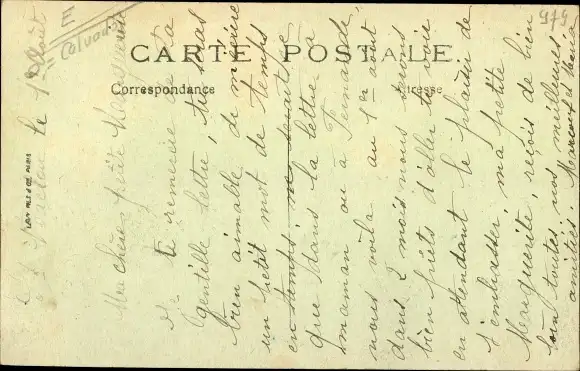 CARTE POSTALE
Correspondance
Adresse
LEVY FILS & CIE PARIS
Calvados
545
le 1er Août
Ma chère petite Marguerite
Je te remercie de ta
gentille lettre, tu seras
bien aimable de m'écrire
un petit mot de temps
en temps, ne serait-ce
que dans la lettre à
maman ou à Fernande,
nous voilà au 1er août
dans 2 mois nous serons
bien prêts d'aller te voir
en attendant le plaisir de
t'embrasser, ma petite
Marguerite, reçois de bien
loin toutes nos meilleures
amitiés. Marcour et Maria